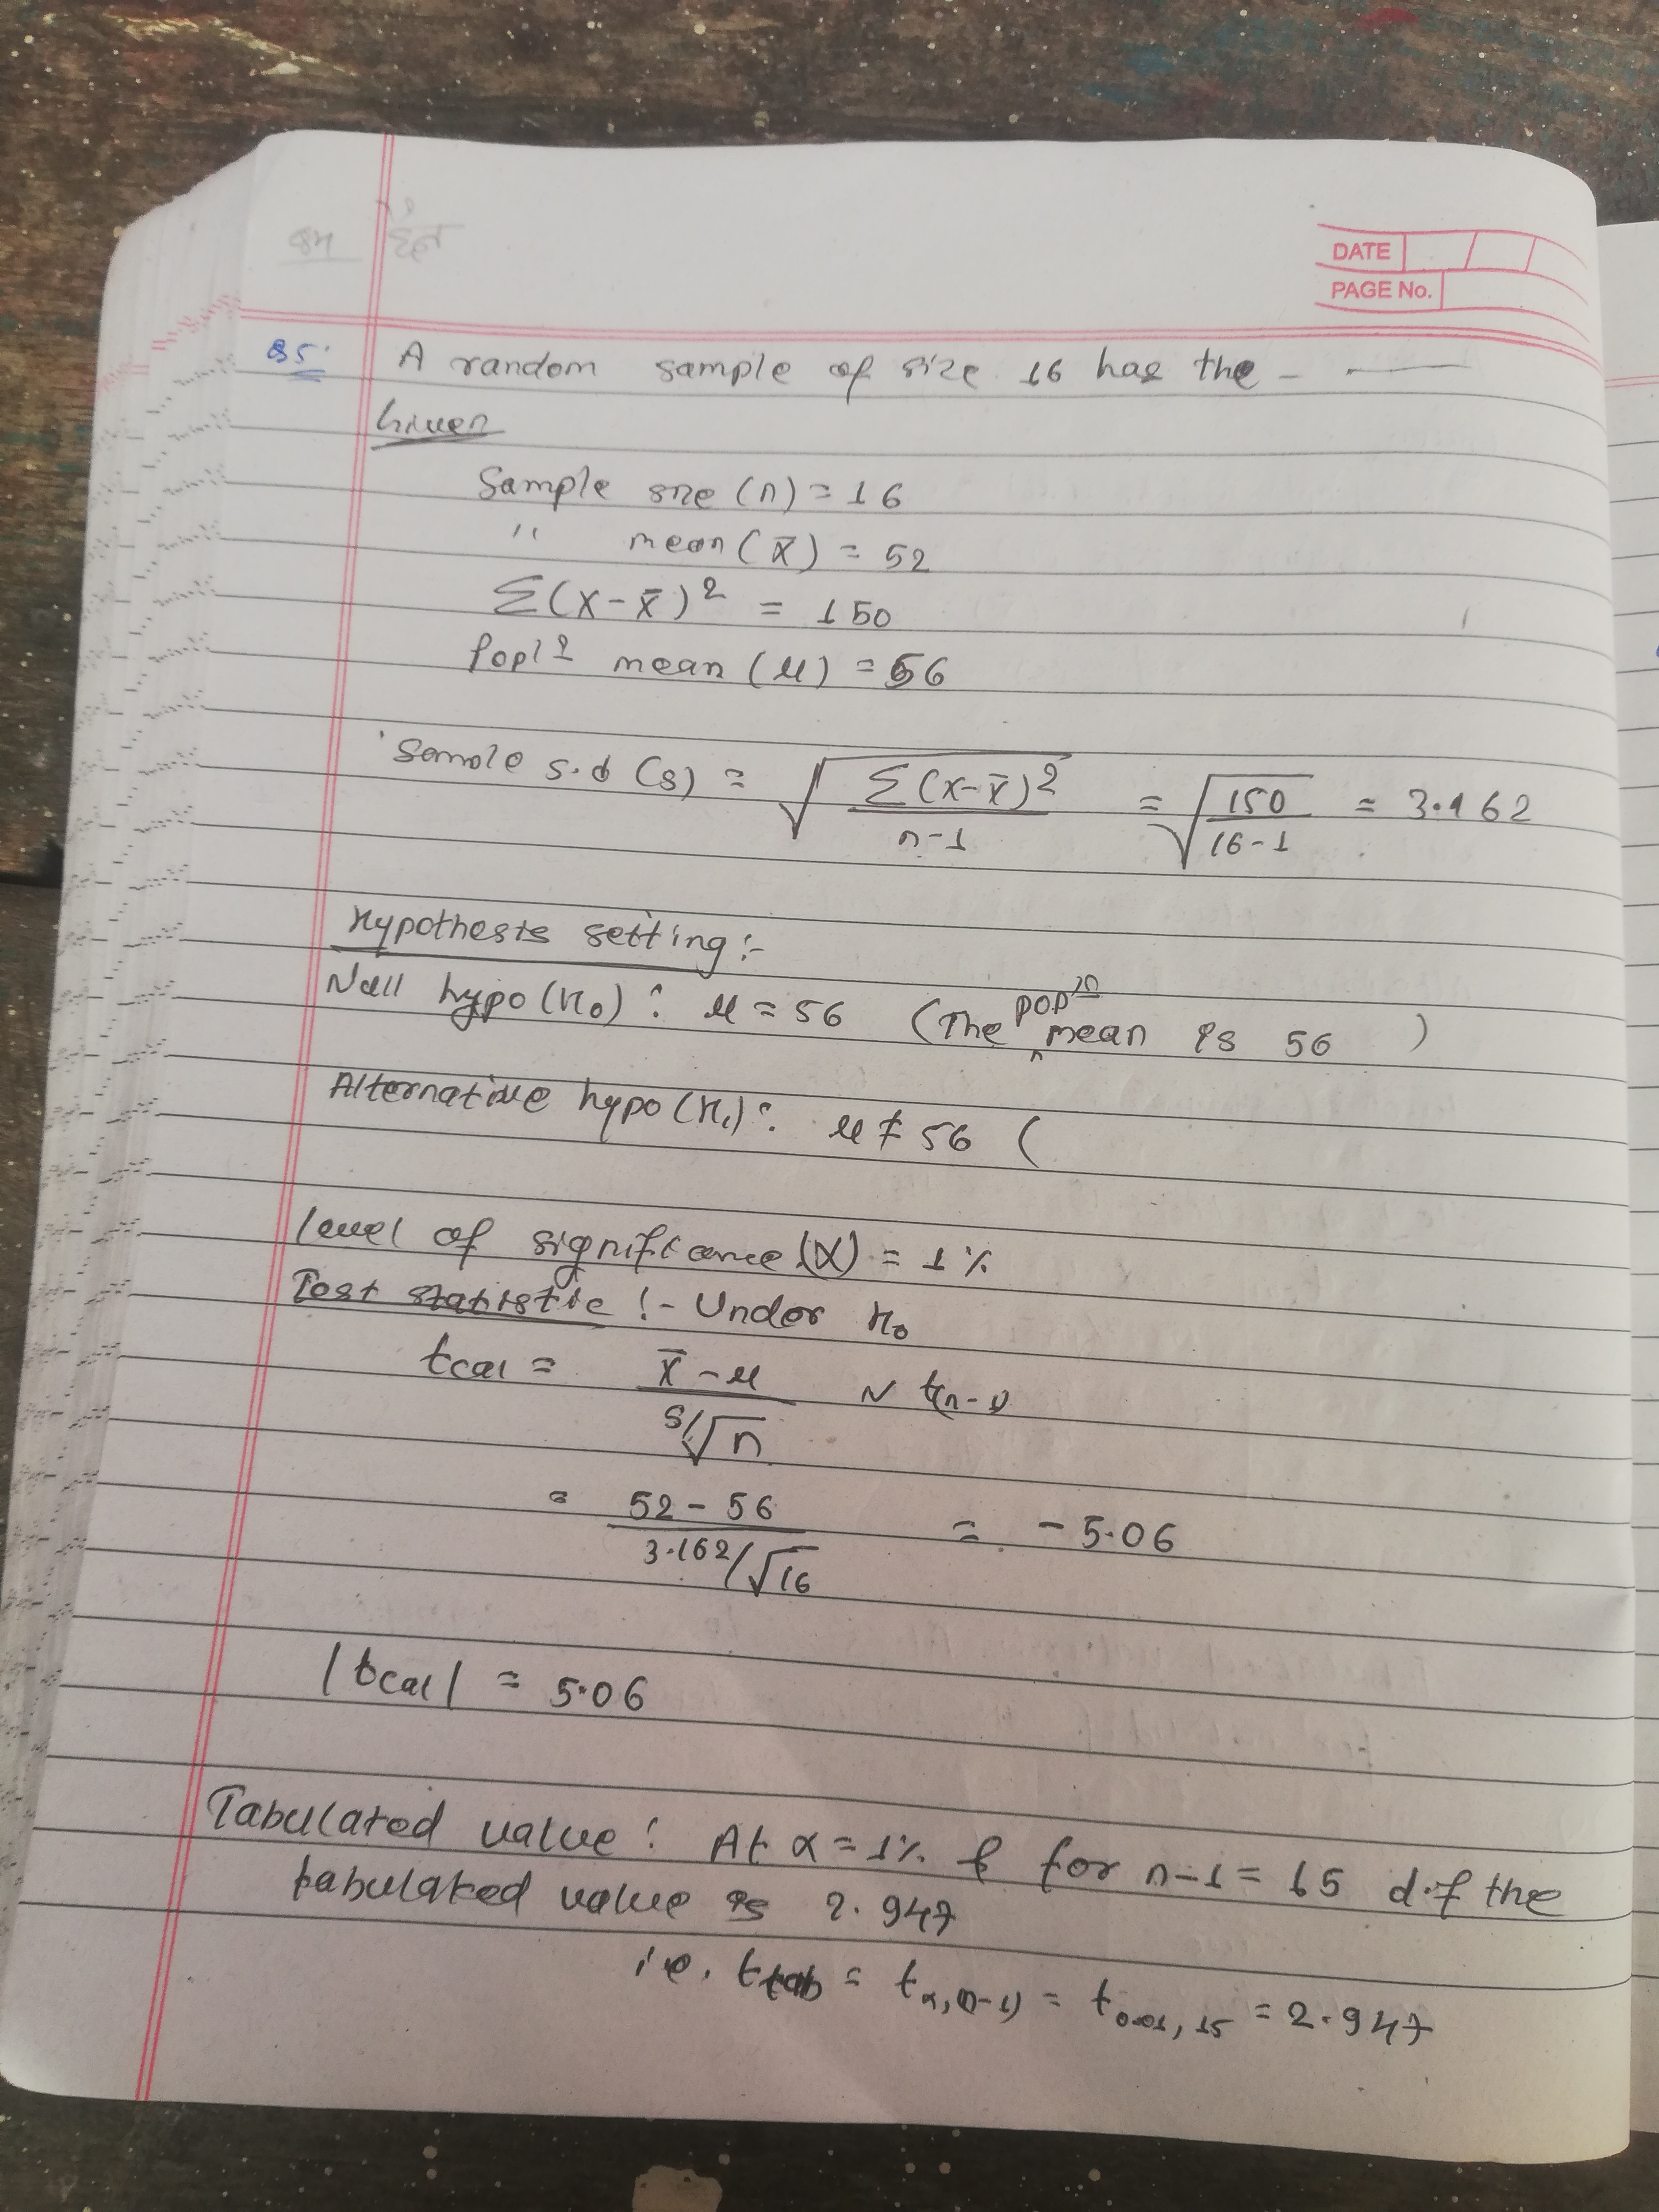 DATE
PAGE No.
Q5. A random sample of size 16 has the -
Given
Sample size (n) = 16
" mean (x̄) = 52
Σ(x-x̄)² = 150
Poplⁿ mean (μ) = 56
Sample s.d (s) = √(Σ(x-x̄)²/n-1) = √(150/16-1) = 3.162
Hypothesis setting :-
Null hypo (H₀) : μ = 56 (The popⁿ mean is 56 )
Alternative hypo (H₁) : μ ≠ 56 (
level of significance (α) = 1 %
Test statistic :- Under H₀
tcal = x̄ - μ / s/√n ~ t(n-1)
= 52 - 56 / 3.162/√16 = - 5.06
|tcal| = 5.06
Tabulated value : At α = 1% & for n-1 = 15 d.f the
tabulated value is 2.947
i.e. ttab = tα,(n-1) = t0.01, 15 = 2.947